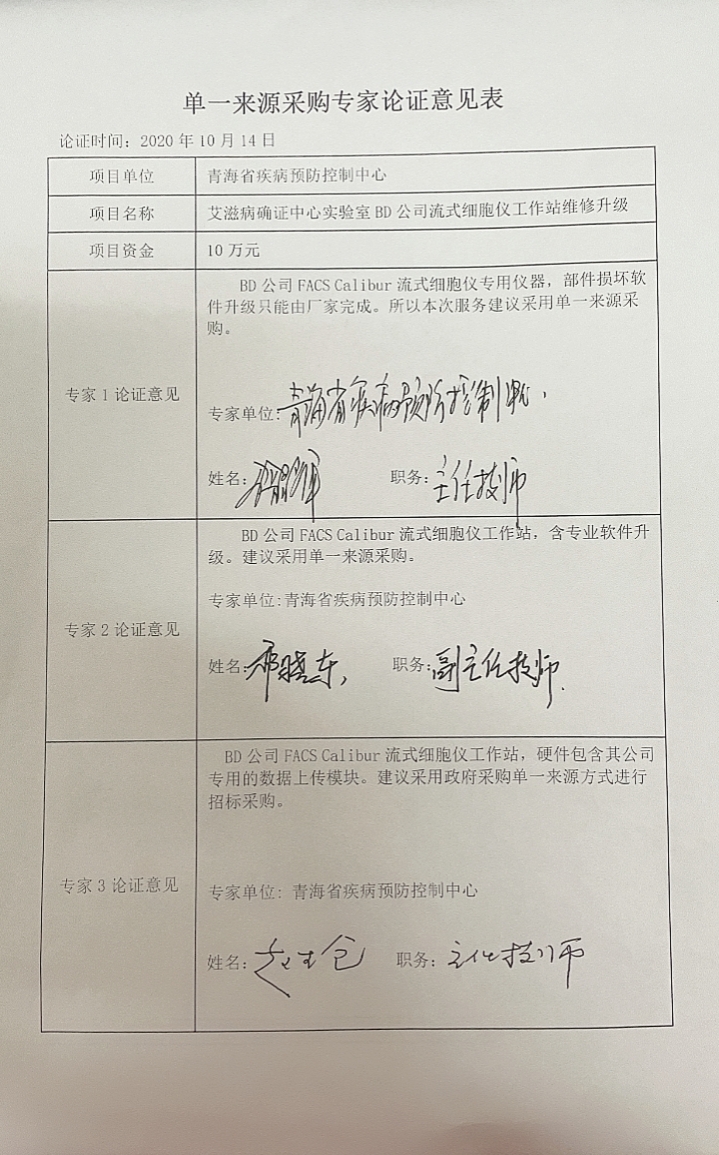 单一来源采购专家论证意见表
论证时间：2020 年 10 月 14 日
项目单位 青海省疾病预防控制中心
项目名称 艾滋病确证中心实验室 BD 公司流式细胞仪工作站维修升级
项目资金 10 万元
BD 公司 FACS Calibur 流式细胞仪专用仪器，部件损坏软
件升级只能由厂家完成。所以本次服务建议采用单一来源采
购。
专家 1 论证意见
专家单位:青海省疾病预防控制中心.
姓名: 职务:主任技师
BD 公司 FACS Calibur 流式细胞仪工作站，含专业软件升
级。建议采用单一来源采购。
专家单位:青海省疾病预防控制中心
专家 2 论证意见
姓名: 职务:副主任技师.
BD 公司 FACS Calibur 流式细胞仪工作站，硬件包含其公司
专用的数据上传模块。建议采用政府采购单一来源方式进行
招标采购。
专家 3 论证意见
专家单位: 青海省疾病预防控制中心
姓名: 职务: 主任技师